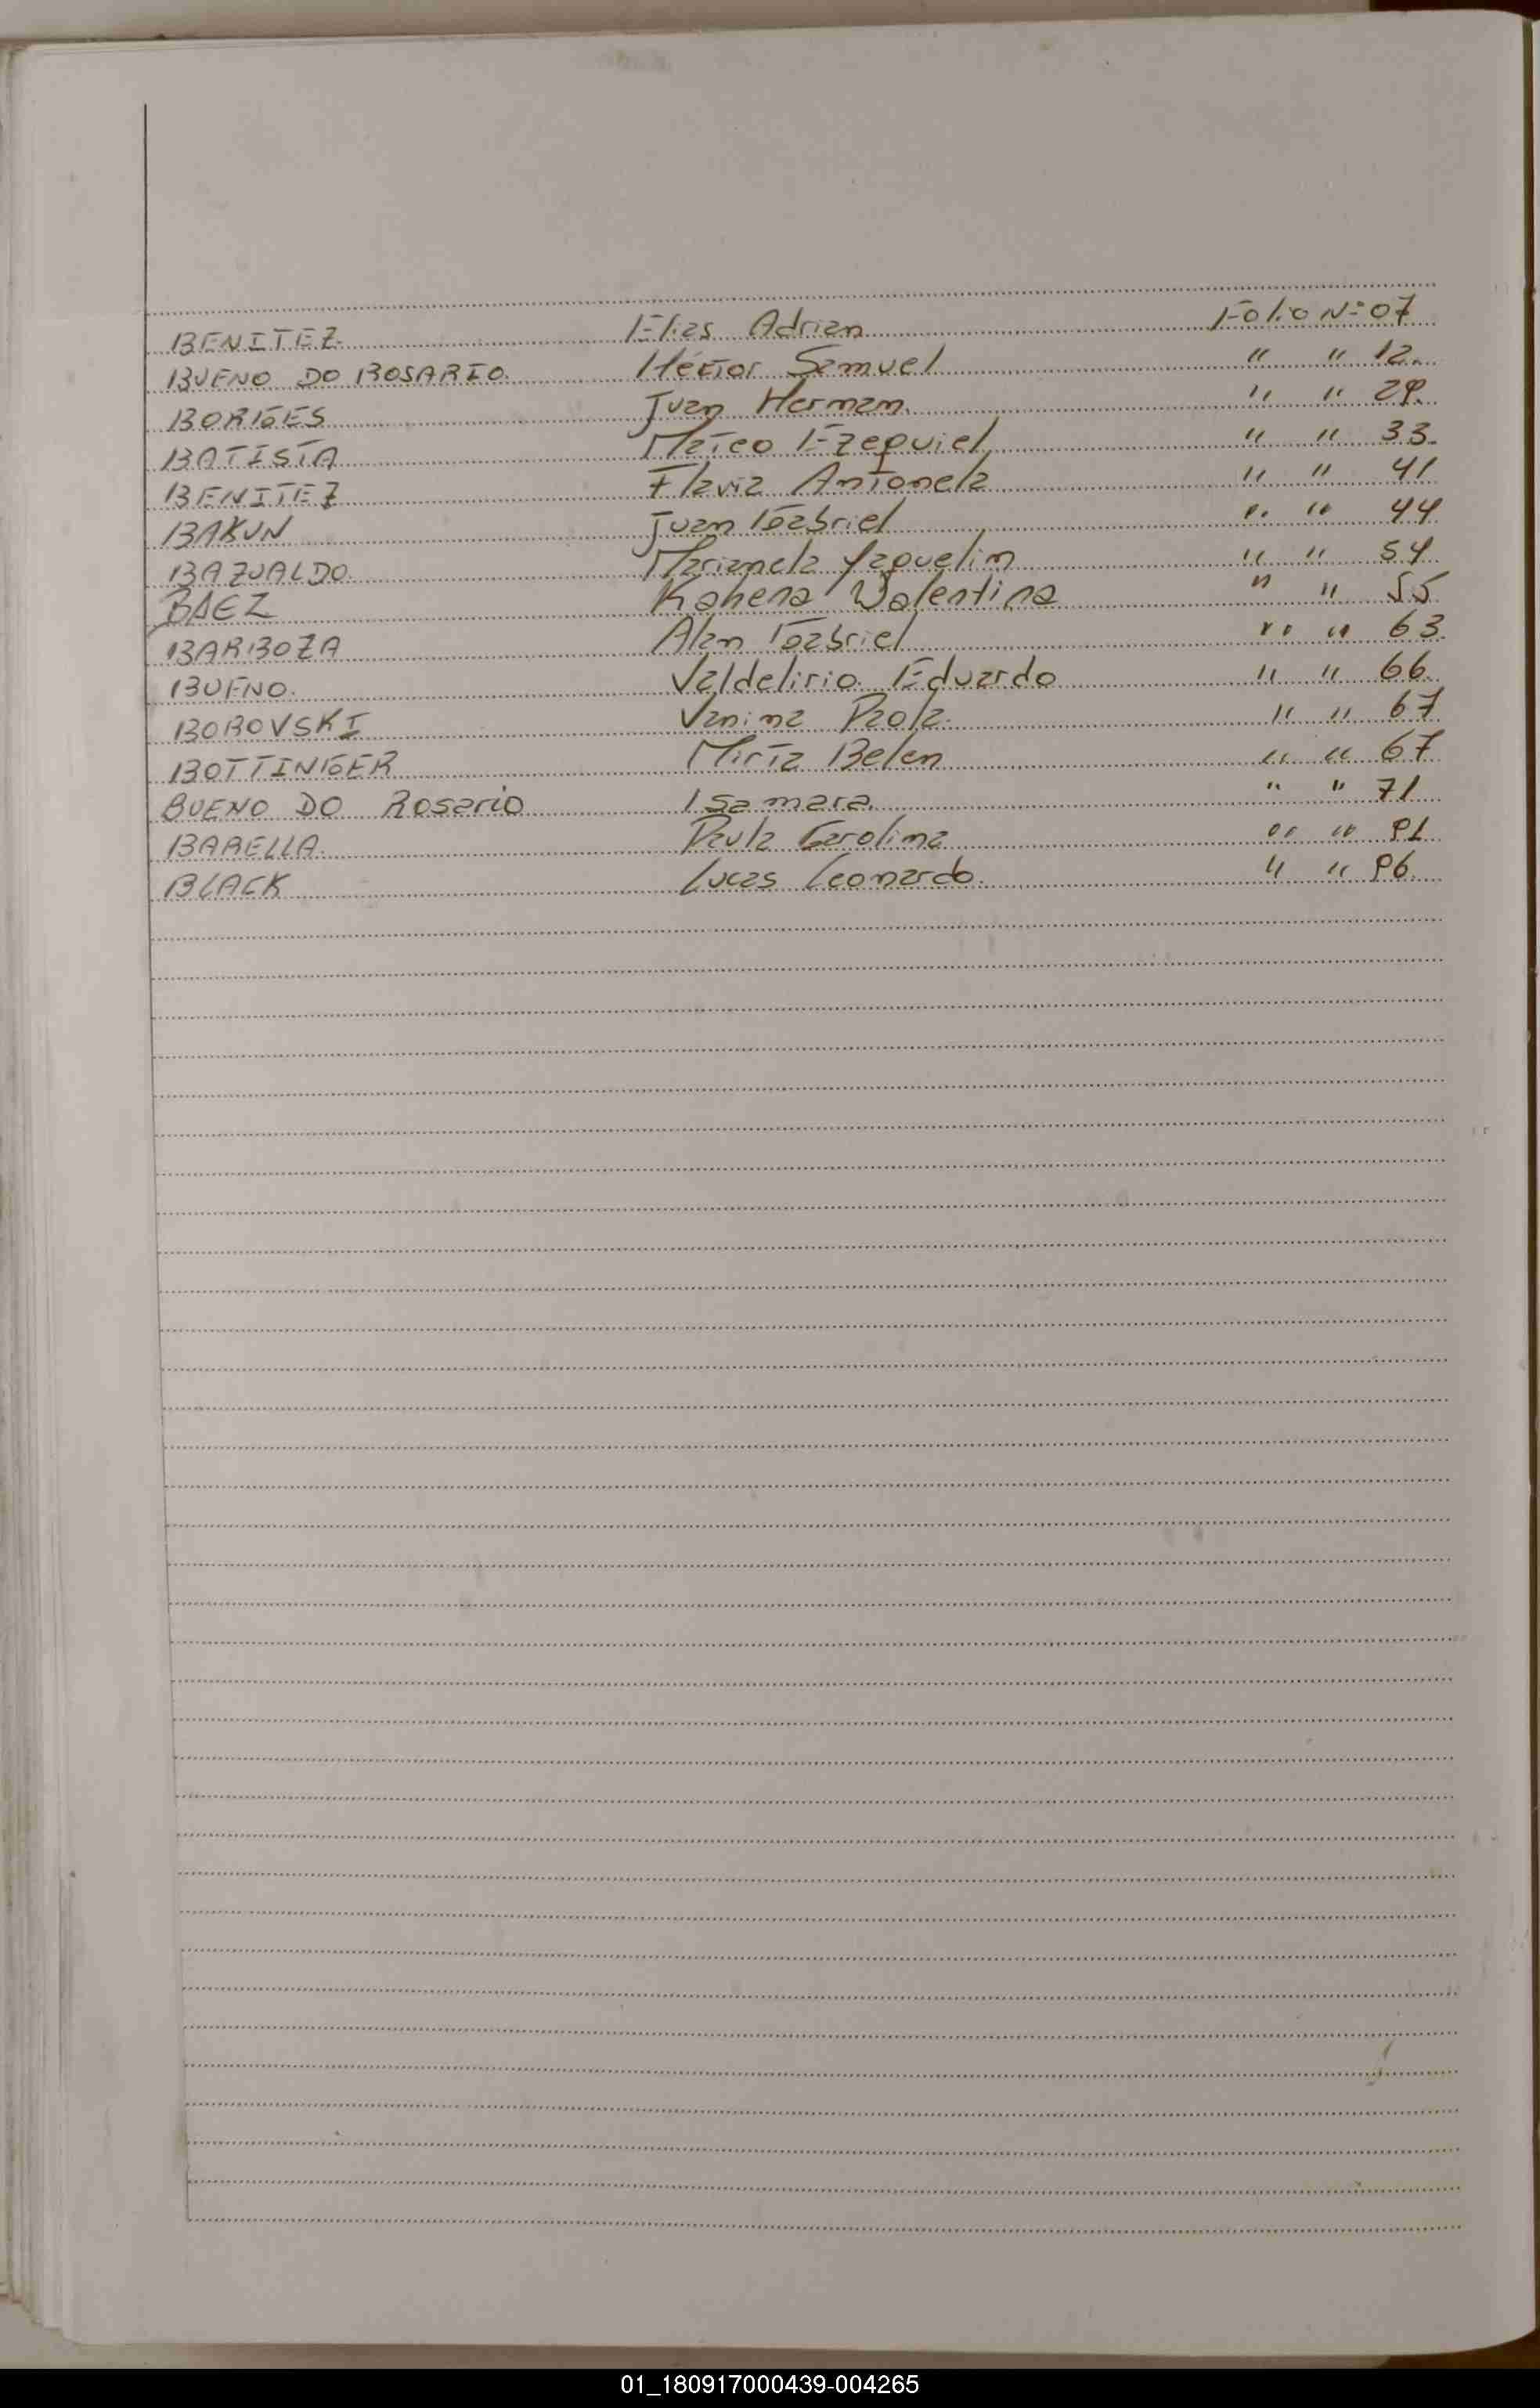 BENITEZ. Elias Adrian Folio Nº 07
BUENO DO ROSARIO. Héctor Samuel " " 12.
BORGES Juan Hernan. " " 29.
BATISTA Mateo Ezequiel " " 33.
BENITEZ Flavia Antonela " " 41
BAKUN Juan Gabriel " " 44
BAZUALDO. Marianela Yaquelin " " 54
BAEZ Kahena Valentina " " 55
BARBOZA Alan Gabriel " " 63.
BUENO. Valdelirio Eduardo " " 66.
BOROVSKI Vanina Paola. " " 67
BOTTINGER Mirta Belen " " 67
BUENO DO Rosario Isamara. " " 71
BARELLA. Paula Carolina " " 91
BLACK Lucas Leonardo. " " 96.
01_180917000439-004265